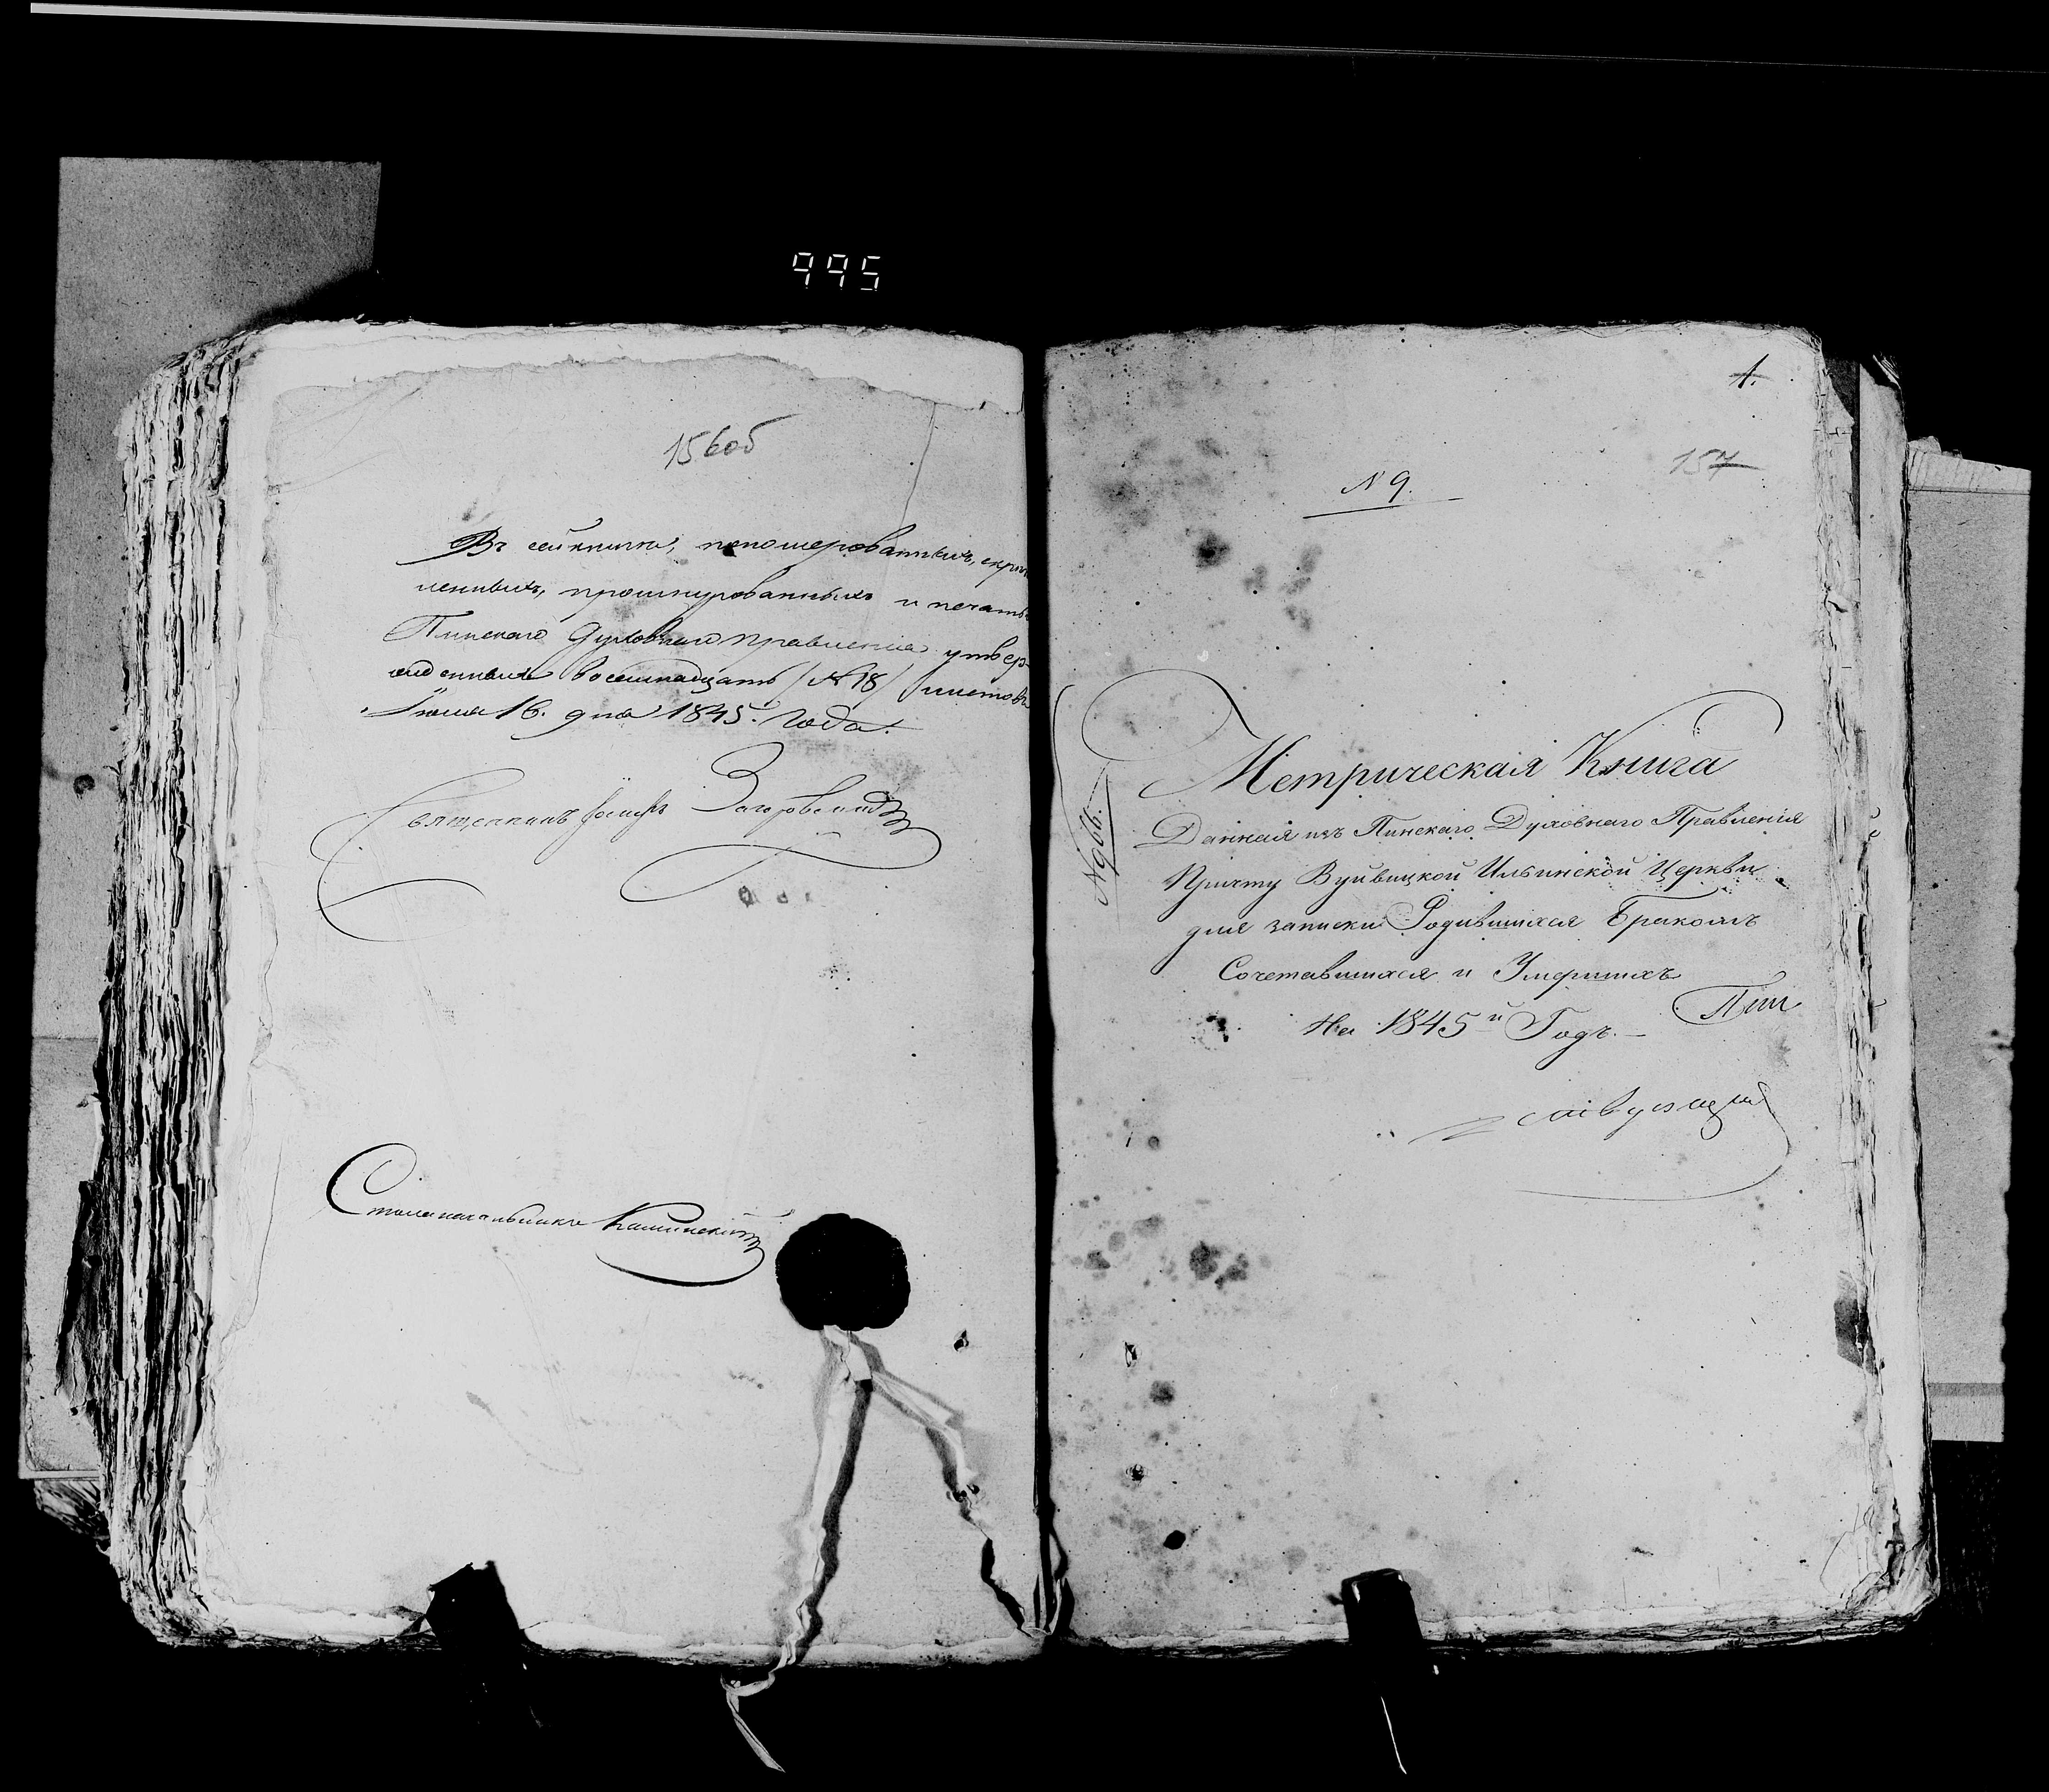 995
156об
Въ сей книги, пономерованныхъ, скрѣп
ленныхъ, прошнурованныхъ и печатью
Пинскаго Духовнаго Правленія утвер-
жденныхъ восемнадцать /№ 18/ листовъ
Іюля 16. дня 1845. года.
Священникъ Іосифъ Загоровскій
Столоначальникъ Калинскій
1.
157
№ 9.
№ 966.
Метрическая Книга
Данная изъ Пинскаго Духовнаго Правленія
Причту Вуйвицкой Ильинской Церкви
для записки Родившихся Бракомъ
Сочетавшихся и Умершихъ
На 1845й Годъ. —
Пин